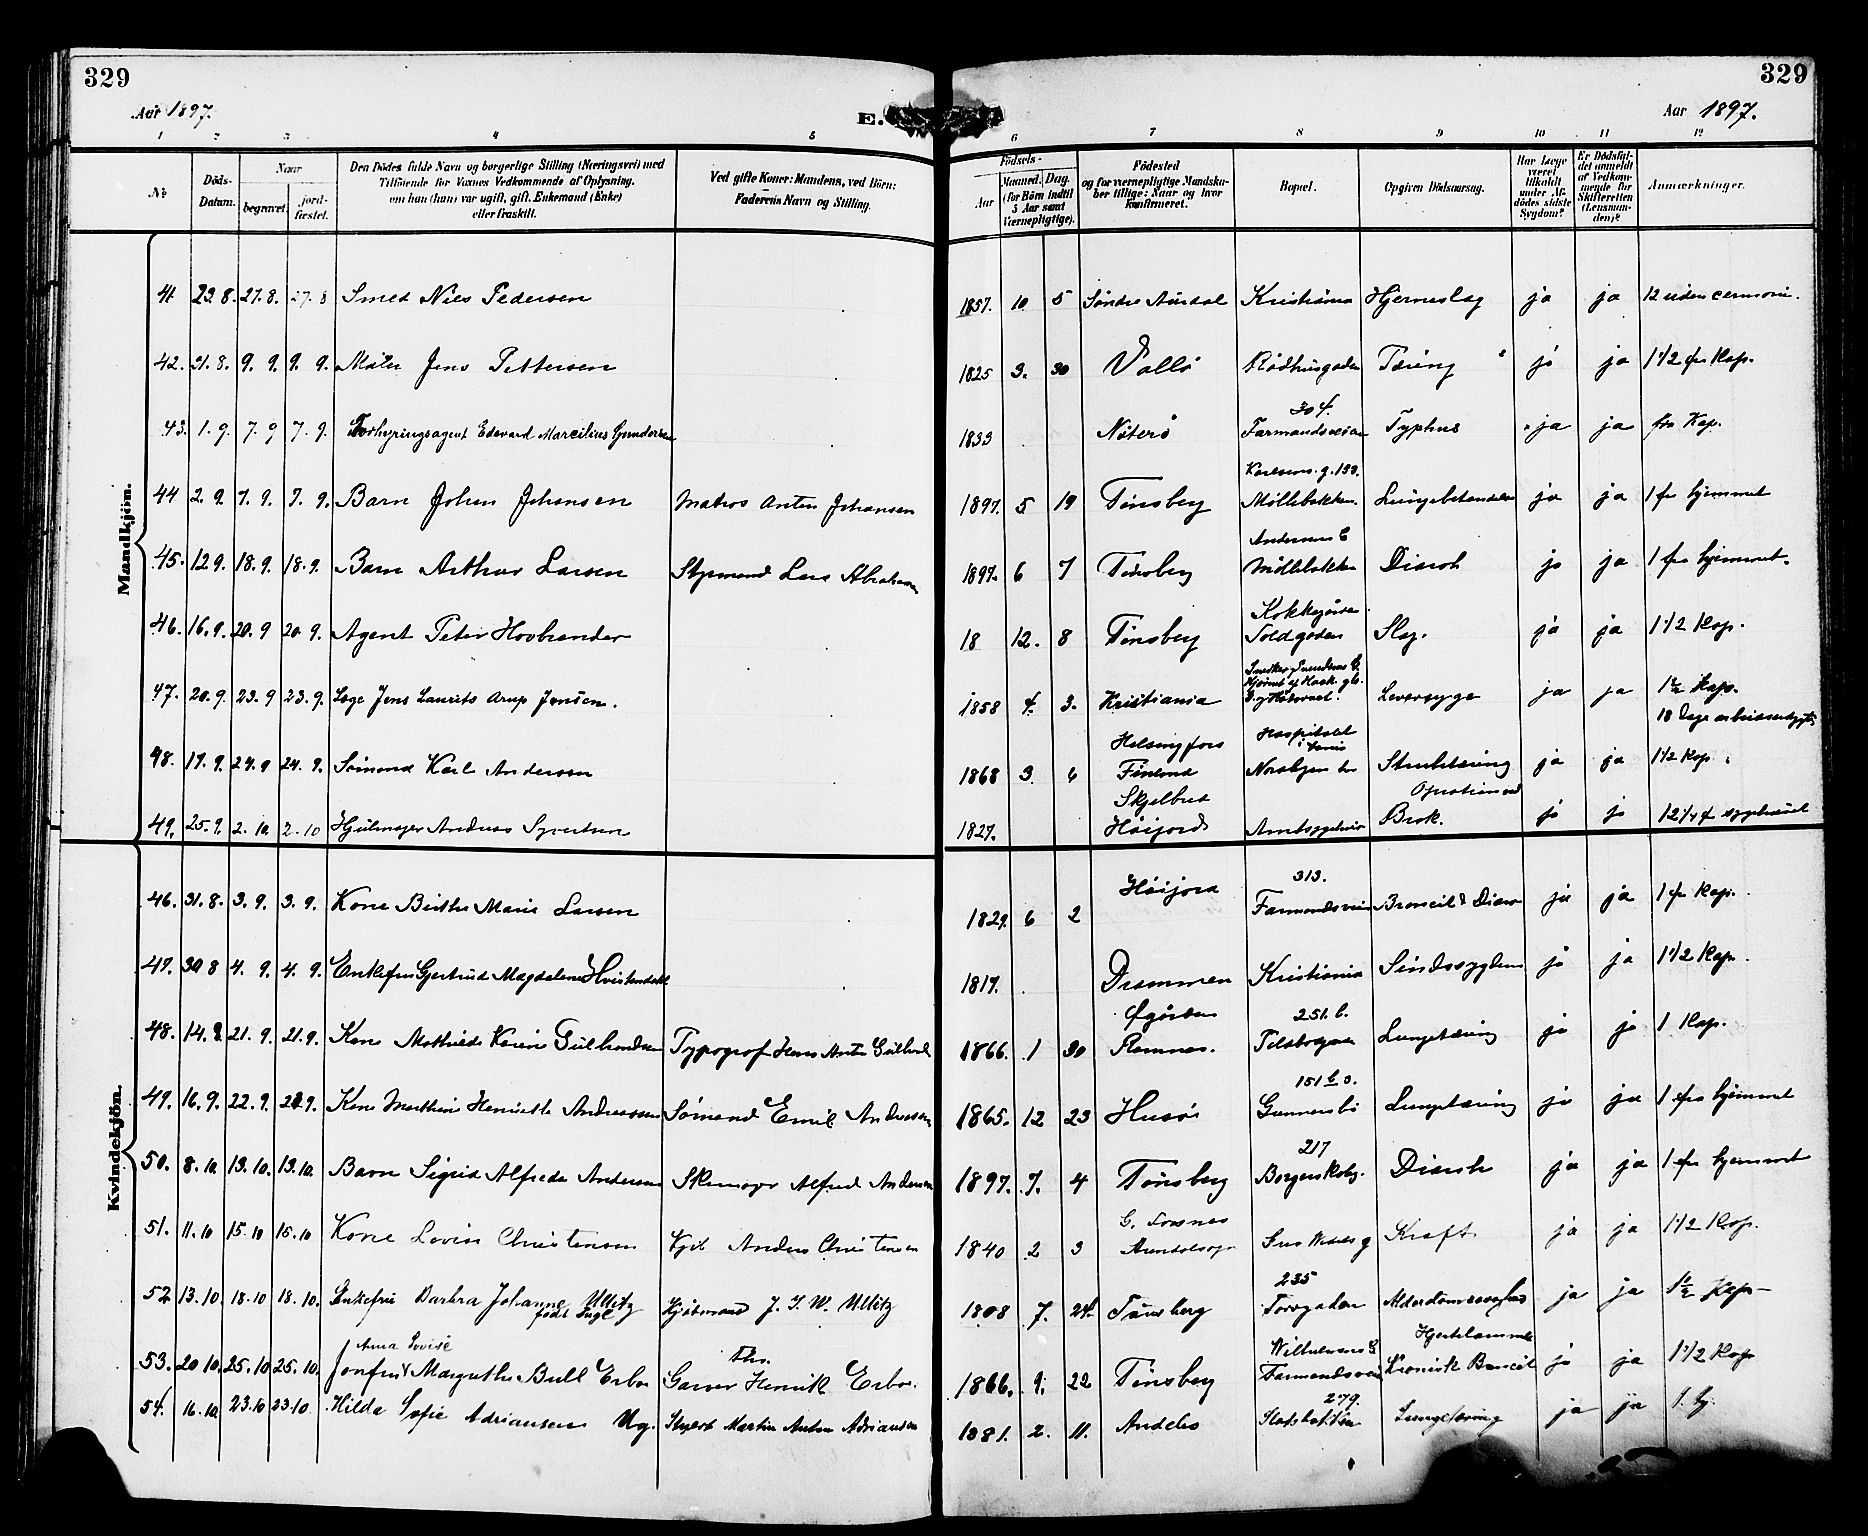 329
329
Aar 1897.
E.
Aar 1897.
1 2 3 4 5 6 7 8 9 10 11 12
No
Döds-Datum.
Naar
begravet.
jordfæstet.
Den Dödes fulde Navn og borgerlige Stilling (Næringsvei) med
Tilföiende for Voxnes Vedkommende af Oplysning,
om han (hun) var ugift, gift, Enkemand (Enke)
eller fraskilt.
Ved gifte Koner: Mandens, ved Börn:
Faderens Navn og Stilling.
Födsels-
Aar
Maaned. Dag.
(for Börn indtil
5 Aar samt
Værnepligtige).
Födested
og for værnepligtige Mandska-
ber tillige: Naar og hvor
konfirmeret.
Bopæl.
Opgiven Dödsaarsag.
Har Læge
været
tilkaldt
under Af-
dödes sidste
Sygdom?
Er Dödsfal-
det anmeldt
af Vedkom-
mende for
Skifteretten
(Lensman-
den)?
Anmærkninger.
Mandkjön.
41 23.8. 27.8. 27.8 Smed Niels Pedersen 1857. 10 5 Søndre Aurdal Kristiania Hjerneslag ja ja 12 uden cermoni.
42. 31.8. 9.9. 9.9. Maler Jens Pettersen 1825 3. 30 Vallö Rådhusgaden Tæring ja ja 1 1/2 fr Kap.
304.
43. 1.9. 7.9 7.9. Forhyringsagent Edevard Marcelius Gundersen 1833 Nøterö Farmandsveien Typhus ja ja fra Kap.
44 2.9. 7.9. 7.9. Barn Johan Johansen Matros Anton Johansen 1897. 5 19 Tönsberg Möllebakken Lungebetændelse ja ja 1 fr hjemmet
45. 12.9. 18.9. 18.9. Barn Arthur Larsen Styrmand Lars Abrahamsen 1897. 6 7 Tönsberg Möllebakken Diaroh ja ja 1 fra hjemmet.
46. 16.9. 20.9 20.9. Agent Peter Hovlrander 18 12. 8 Tönsberg Toldgaden Slag. ja ja 1 1/2 Kap.
47. 20.9. 23.9 23.9. Læge Jens Laurits Arup Jensen. 1858 4. 3. Kristiania Leversyge ja ja 1 1/2 Kap.
48. 17.9. 24.9 24.9. Sömand Karl Andersen 1868 3. 6 Helsingfors Finland Hospitalet Strubetæring ja ja 1 1/2 Kap.
49. 25.9. 2.10 2.10 Hjulmager Andreas Syvertsen 1827. Skjelbred Höijord Amtssygehus Operation ved Brok. ja ja 12 1/4 f sygehuset
Kvindekjön.
313.
46. 31.8. 3.9. 3.9. Kone Birthe Marie Larsen 1829. 6 2 Höijord Farmandsveien Broncit & Diaro ja ja 1 fr Kap.
47. 30 8 4.9. 4.9. Enkefru Gjertrud Magdalene Hvistendahl 1817. Drammen Kristiania Sindssygdom ja ja 1 1/2 Kap.
251.b.
48. 14.9. 21.9. 21.9. Kone Mathilde Karine Gulbrandsen Typograf Hans Anton Gulbrands 1866. 1 30 Ramnes. Lungetæring ja ja 1 Kap.
151 b o.
49. 16.9. 22.9. 22.9. Kone Marthine Henriette Andreassen Sömand Emil Andreassen 1865. 12 23 Husö Gunnersbö Lungetæring ja ja 1 fra hjemmet
217
50. 8.10. 13.10. 13.10. Barn Sigrid Alfreda Andersen Skomager Alfred Andersen 1897. 7. 4 Tönsberg Borgerskolg. Diaroh ja ja 1 fr hjemmet
51. 11.10 15.10 15.10 Kone Lovise Christensen Kpt Anders Christensen 1840 2 3 Kræft ja ja 1 1/2 Kap.
235
52 13.10. 18.10 18.10. Enkefru Barbra Johanne Ullitz födt Fugl Kjöbmand J. J. W. Ullitz 1808 7. 24. Tönsberg Torvgaden Alderdomssvaghed ja ja 1 1/2 Kap-
53. 20.10. 25.10 25.10. Jomfru Anna Lovise Margrethe Bull Erbo Garver Thr. Henrik Erbo. 1866. 9. 22 Tönsberg Farmandsveien Hjertelammelse Kronisk Broncit ja ja 1 1/2 Kap
279.
54. 16.10. 23.10 23.10. Hilda Sofie Adriansen Ug. Skipsf Martin Anton Adriansen 1881. 2. 11. Andebo Slotsbakken Lungetæring ja ja 1. hj.